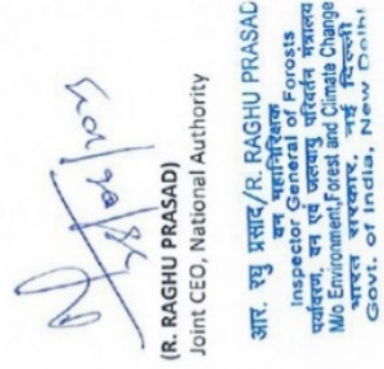 (R. RAGHU PRASAD)
Joint CEO, National Authority
आर. रघु प्रसाद/R. RAGHU PRASAD
वन महानिरिक्षक
Inspector General of Forosts
पर्यावरण, वन एवं जलवायु परिवर्तन मंत्रालय
M/o Environment,Forest and Climate Change
भारत सरकार, नई दिल्ली
Govt. of India, New Delhi